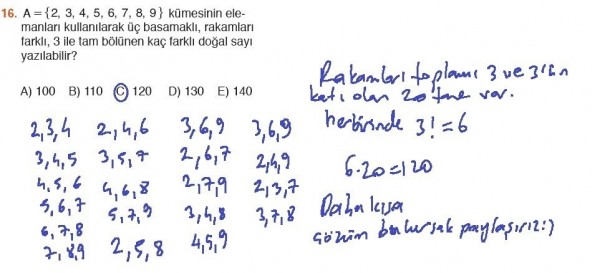 16. A = {2, 3, 4, 5, 6, 7, 8, 9} kümesinin ele-
manları kullanılarak üç basamaklı, rakamları
farklı, 3 ile tam bölünen kaç farklı doğal sayı
yazılabilir?
A) 100 B) 110 C) 120 D) 130 E) 140
2,3,4 2,4,6 3,6,9 3,6,9
3,4,5 3,5,7 2,6,7 2,4,9
4,5,6 4,6,8 2,7,9 2,3,7
5,6,7 5,7,9 3,4,8 3,7,8
6,7,8 2,5,8 4,5,9
7,8,9
Rakamları toplamı 3 ve 3'ün
katı olan 20 tane var.
herbirinde 3! = 6
6.20=120
Daha kısa
çözüm bulursak paylaşırız:)